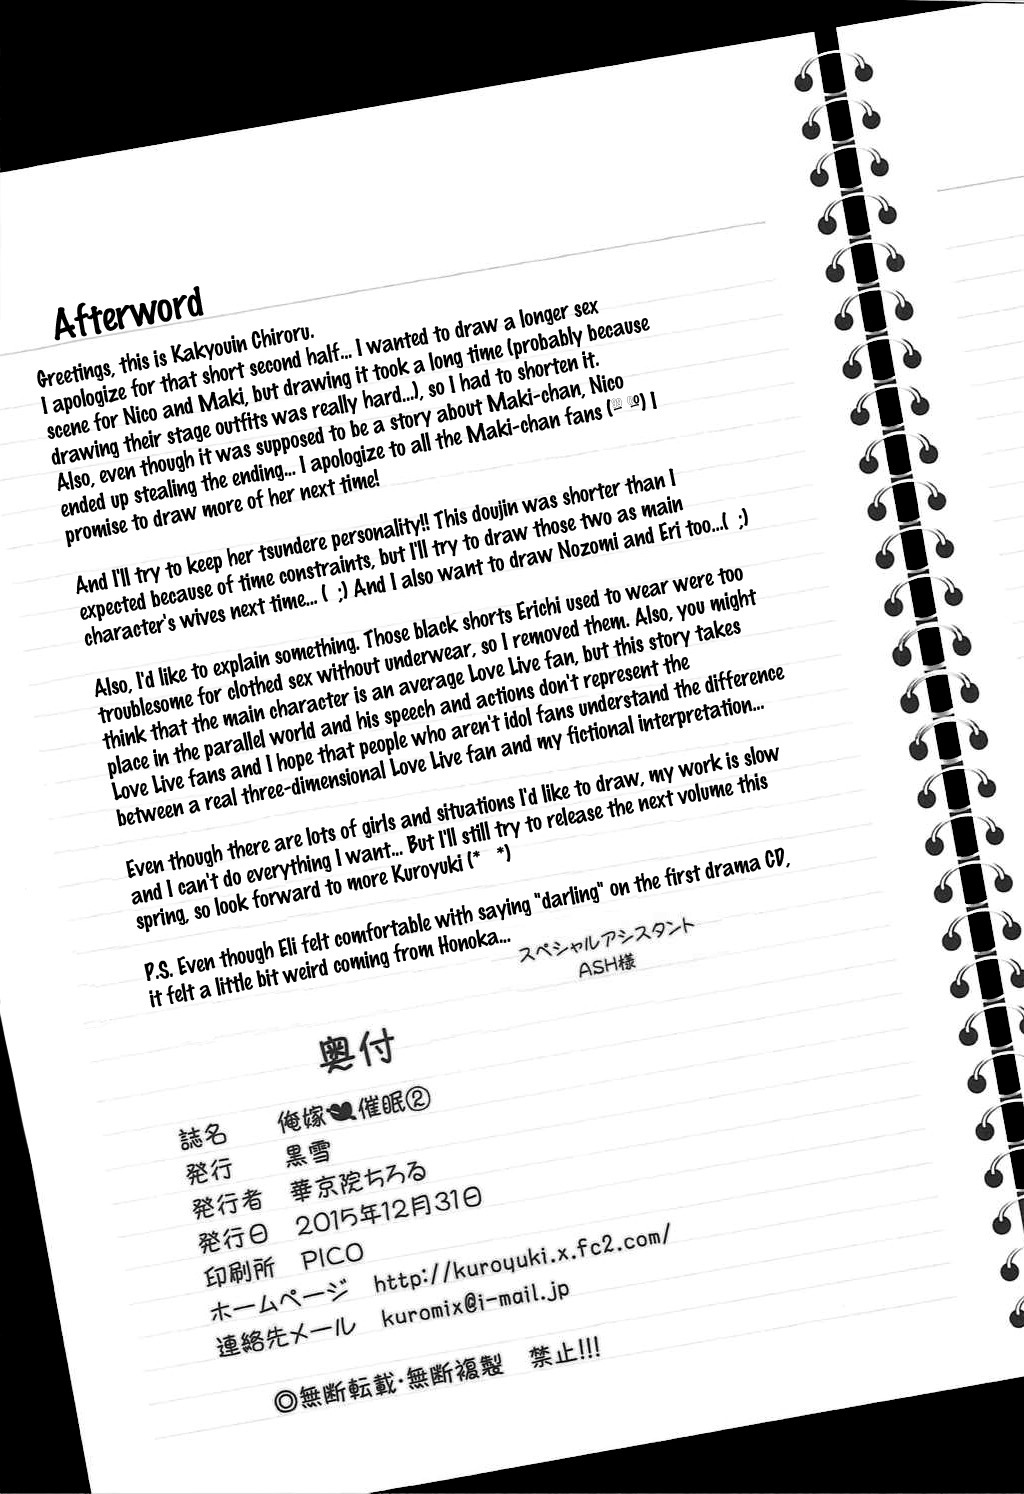 Afterword
Greetings, this is Kakyouin Chiroru.
I apologize for that short second half... I wanted to draw a longer sex
scene for Nico and Maki, but drawing it took a long time (probably because
drawing their stage outfits was really hard...), so I had to shorten it.
Also, even though it was supposed to be a story about Maki-chan, Nico
ended up stealing the ending... I apologize to all the Maki-chan fans I
promise to draw more of her next time!
And I'll try to keep her tsundere personality!! This doujin was shorter than I
expected because of time constraints, but I'll try to draw those two as main
character's wives next time... ( ;) And I also want to draw Nozomi and Eri too...( ;)
Also, I'd like to explain something. Those black shorts Erichi used to wear were too
troublesome for clothed sex without underwear, so I removed them. Also, you might
think that the main character is an average Love Live fan, but this story takes
place in the parallel world and his speech and actions don't represent the
Love Live fans and I hope that people who aren't idol fans understand the difference
between a real three-dimensional Love Live fan and my fictional interpretation...
Even though there are lots of girls and situations I'd like to draw, my work is slow
and I can't do everything I want... But I'll still try to release the next volume this
spring, so look forward to more Kuroyuki (* *)
P.S. Even though Eli felt comfortable with saying "darling" on the first drama CD,
it felt a little bit weird coming from Honoka...
スペシャルアシスタント
ASH様
奥付
誌名 俺嫁催眠②
発行 黒雪
発行者 華京院ちろる
発行日 2015年12月31日
印刷所 PICO
ホームページ http://kuroyuki.x.fc2.com/
連絡先メール kuromix@i-mail.jp
◎無断転載・無断複製 禁止!!!